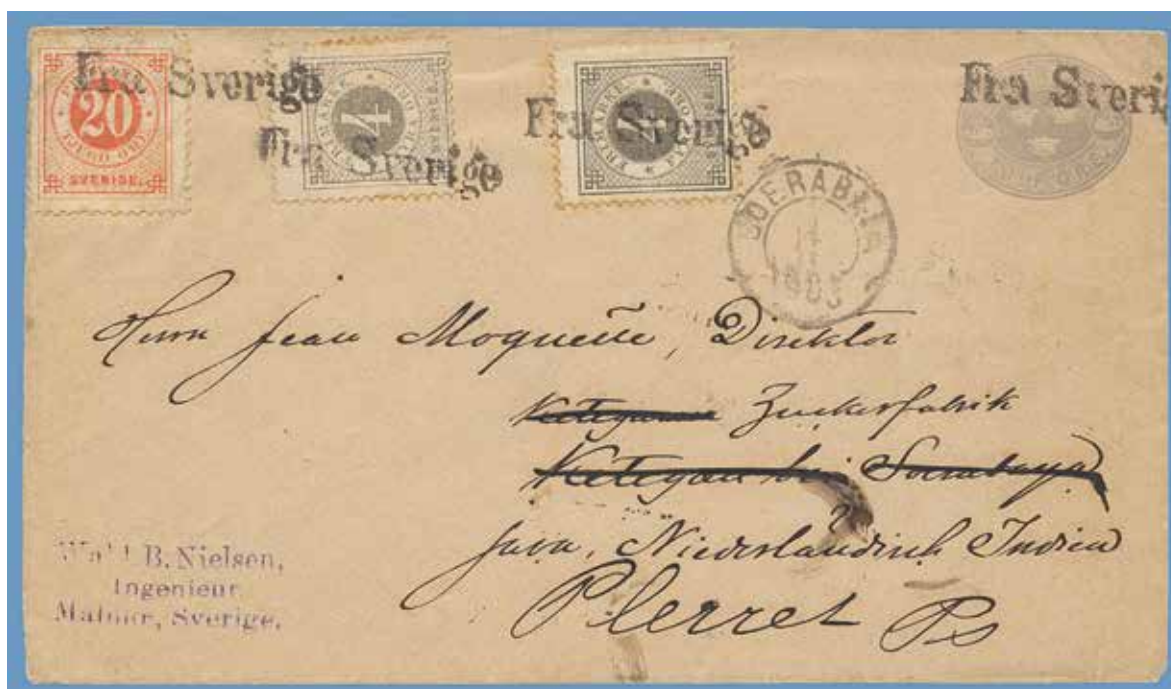 Fra Sverige
Fra Sverige
Fra Sverige
Fra Sveri
20
TJUGO ÖRE
SVERIGE.
4
FRIMÄRKE
4
FRIMÄRKE
SOERABAJA
Herrn Jean Moquette, Direktor
Ketegan Zuckerfabrik
Ketegan bei Soerabaya
Java, Niederländisch Indien
Plerret Ps
B. Nielsen,
Ingenieur
Malmö, Sverige.